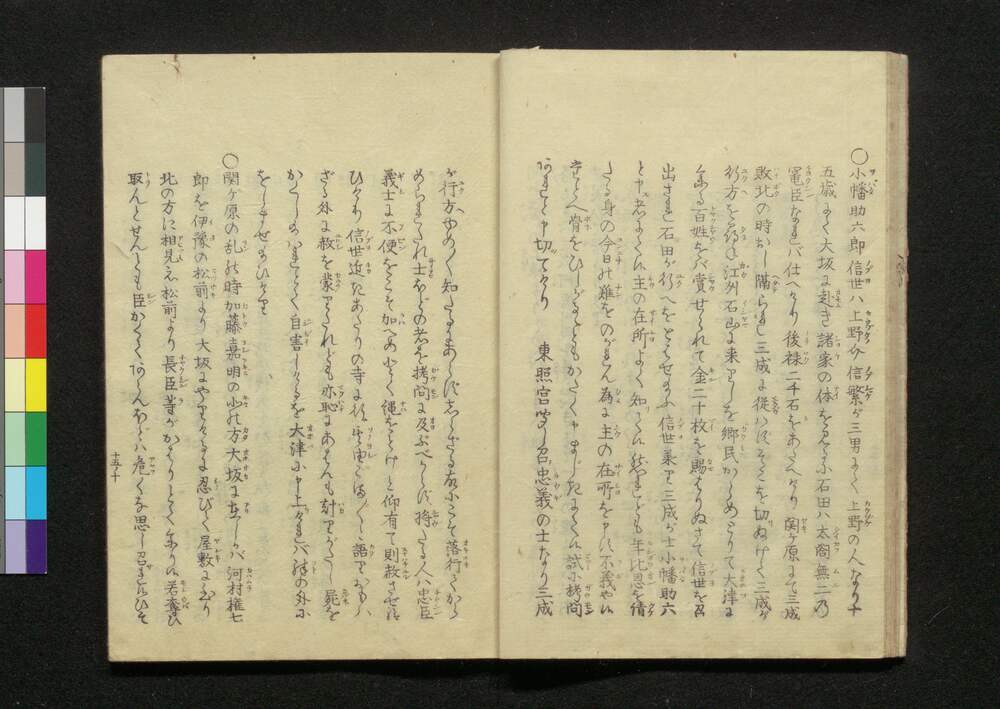 ○小幡助六郎信世ハ上野介信繁が三男にて上野の人なり十
五歳にて大坂に赴き諸家の体を見るに石田ハ太閤無二乃
寵臣なれバ仕へけり後禄二千石をあたへけり関ヶ原にて三成
敗北の時おし隔られ三成に従はずそこを切ぬけて三成が
行方を尋ね江州石山に来りしを郷民からめとりて大津に
参る百姓をバ賞せられて金二十枚を賜はりぬさて信世を召
出され石田が行へをとはせ給ふ信世承り三成が士小幡助六
と申者にてくれ主の在所よく知て候然れども年比恩を請
たる身の今日の難をのがれん為に主の在所を申さん不義やは
せん骨をひしがるともかたく申まじきにて候試に拷問
あれと申切てけり 東照宮聞し召忠義の士なり三成
が行方やのく知たるまあらじ
められたれ士ほどの者を拷問に及ぶべからず将たる人ハ忠臣
義士に不便をこそ加へめとく縄をとけと仰有て則赦させ給
ひけり信世近きあたりの寺に行
ざる外に赦を蒙りくれども亦恥にあはんも計りがたし屍を
かくし給はれとて自害しけるを大津に申上けれバ殊の外に
をしませ給ひけり
○関ヶ原の乱の時加藤嘉明の北の方大坂に在しかバ河村権七
郎を伊豫の松前より大坂にやりけるに忍びて屋敷に入り
北の方に相見え松前より長臣等がかはりとて参りに若奪ひ
取んとせんとも臣かくてあらんほどハ危くな思し召されひそ
十五ノ十